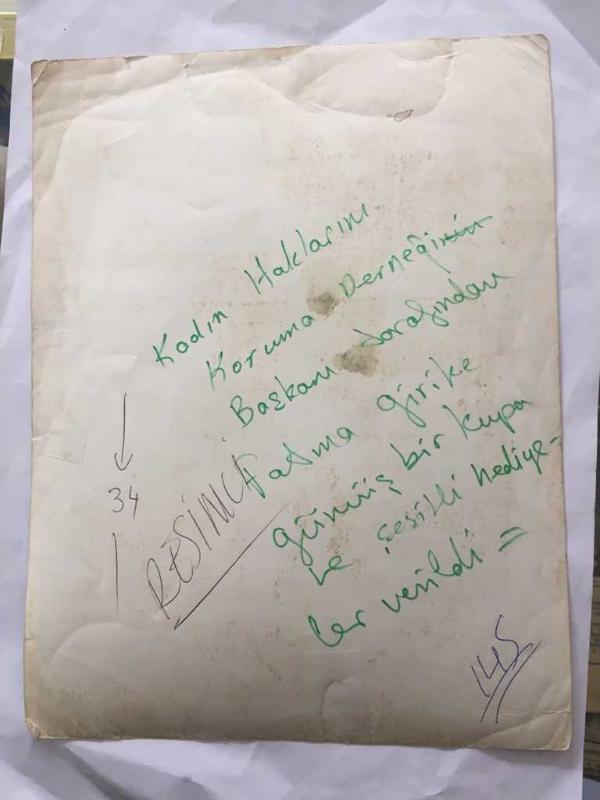 Kadın Haklarını
Koruma Derneğinin
Başkanı tarafından
Fatma girike
gümüş bir kupa
ve çeşitli hediye-
ler verildi =
34
RESİMCİ
145